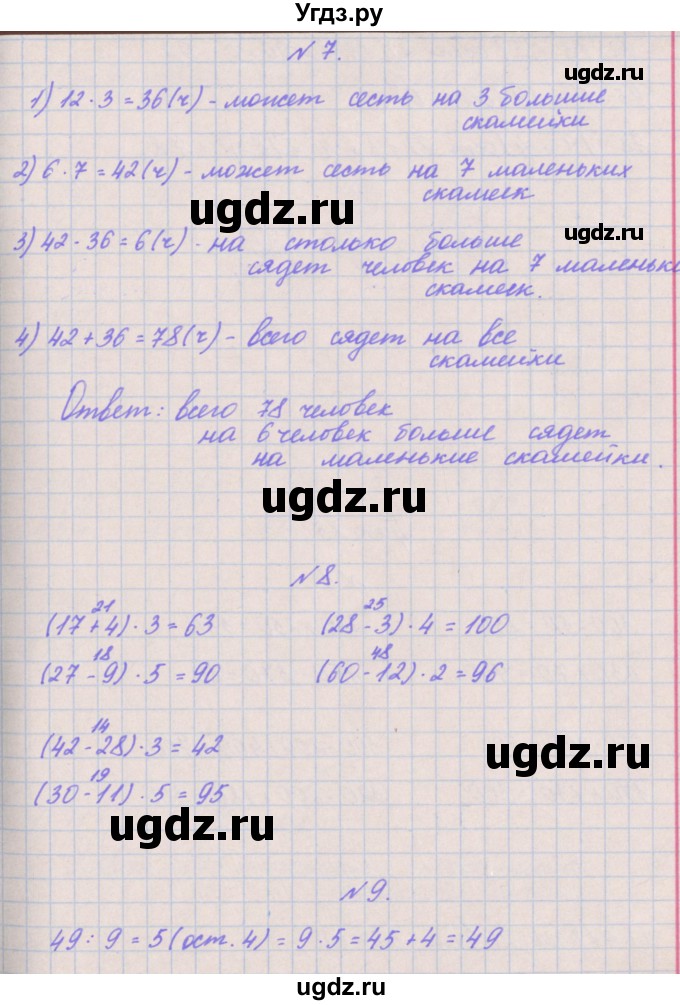 Угдз.ру
ugdz.ru
№ 7.
ugdz.ru
1) 12 · 3 = 36 (ч) - может сесть на 3 большие
скамейки
2) 6 · 7 = 42 (ч) - может сесть на 7 маленьких
скамеек
ugdz.ru
ugdz.ru
3) 42 - 36 = 6 (ч) - на столько больше
сядет человек на 7 маленьки
скамеек.
4) 42 + 36 = 78 (ч) - всего сядет на все
скамейки
Ответ: всего 78 человек
на 6 человек больше сядет
на маленькие скамейки.
ugdz.ru
№ 8.
21 25
(17 + 4) · 3 = 63 (28 - 3) · 4 = 100
18 48
(27 - 9) · 5 = 90 (60 - 12) · 2 = 96
14
(42 - 28) · 3 = 42
ugdz.ru
19
(30 - 11) · 5 = 95
ugdz.ru
№ 9.
49 : 9 = 5 (ост. 4) = 9 · 5 = 45 + 4 = 49
ugdz.ru